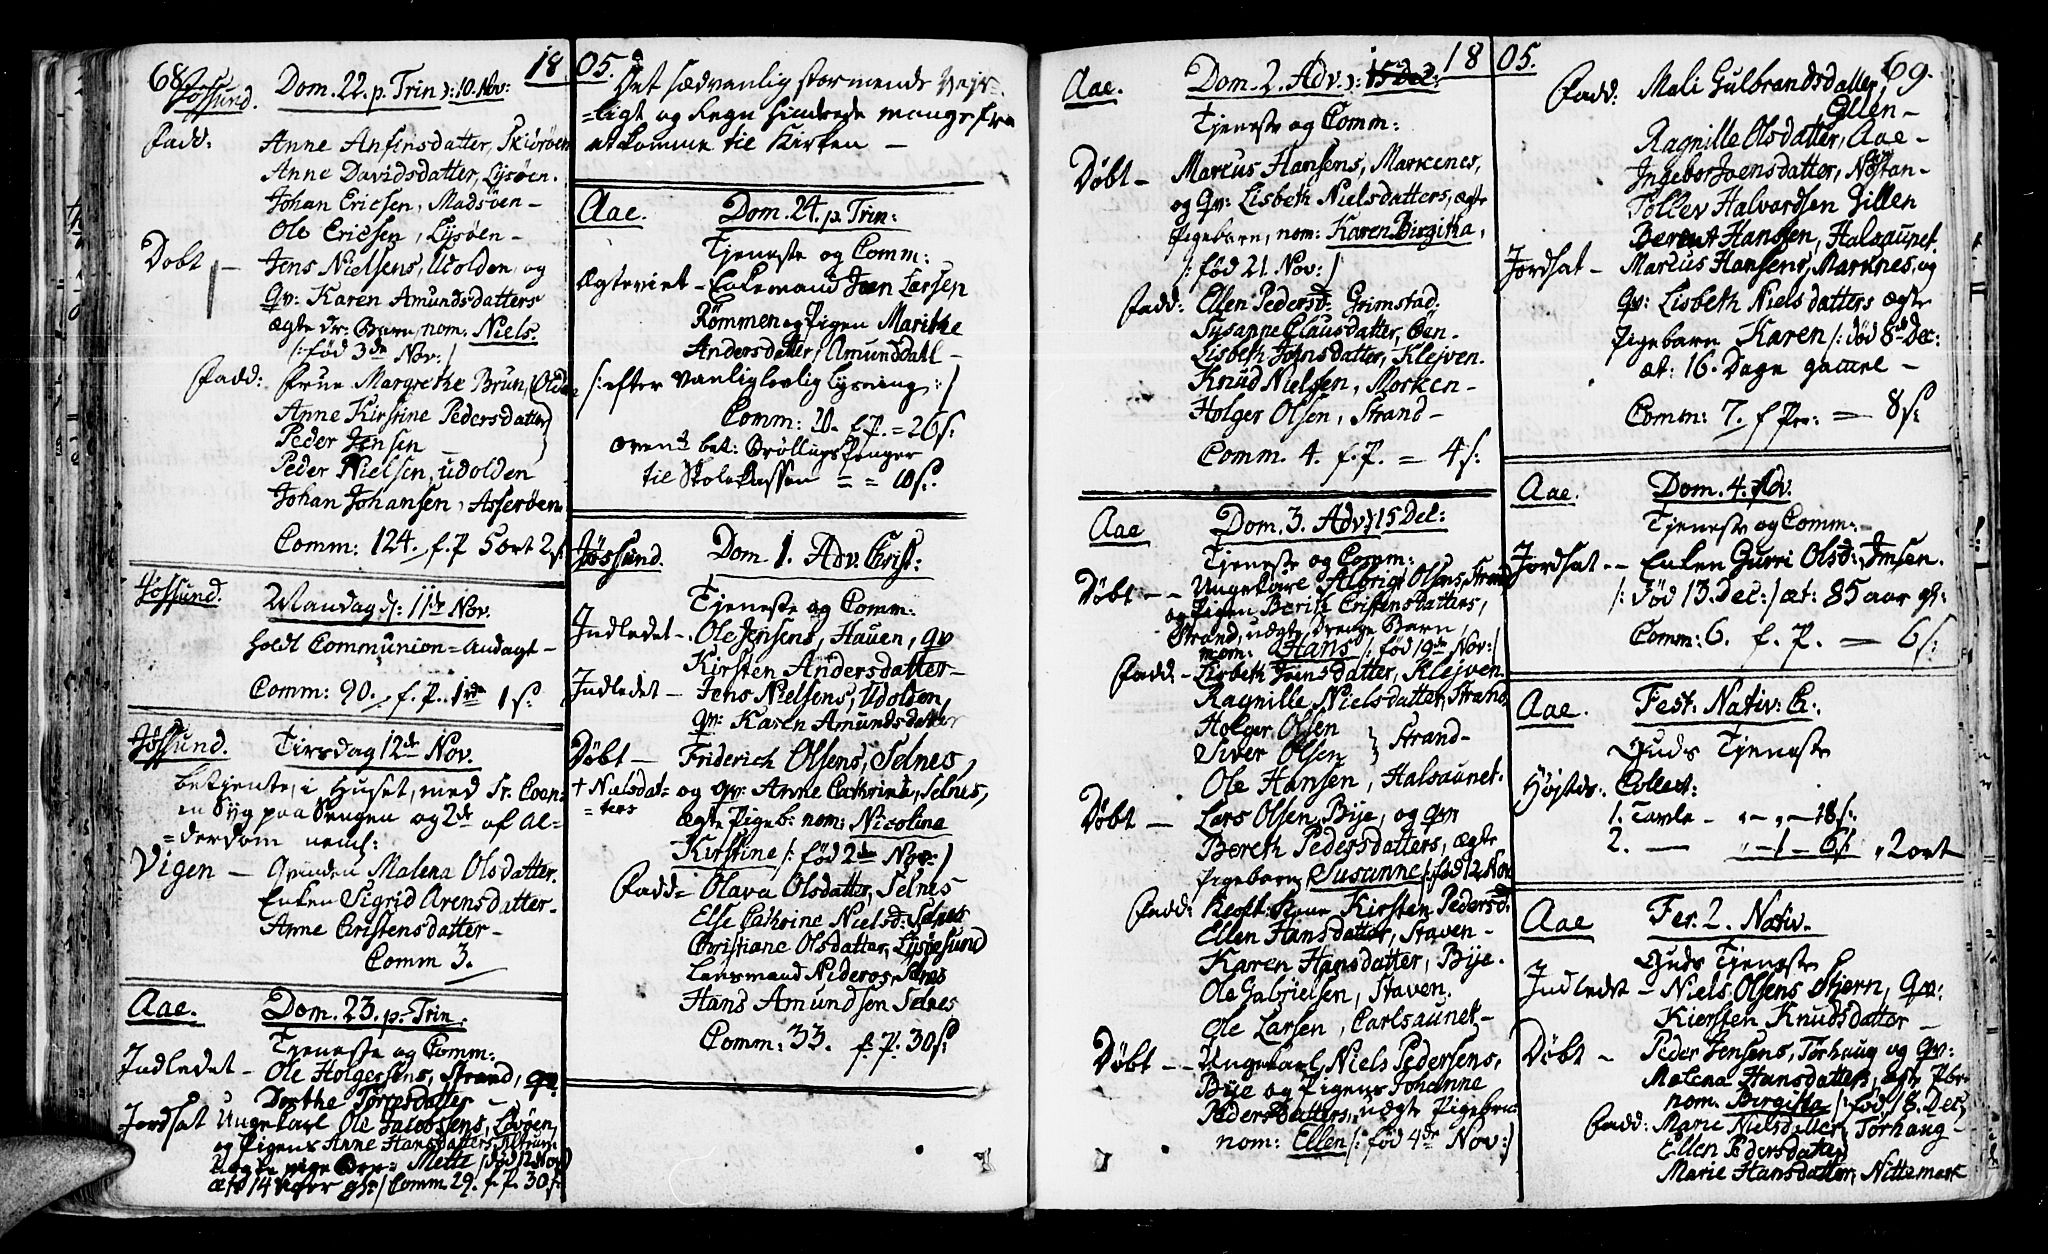 68.
1805.
Jössund. Dom. 22. p. Trin: 10. Nov:
Fadd: Anne Anfinsdatter, Skiröen
Anne Davidsdatter, Lysøen.
Johan Ericsen, Madsöen -
Ole Ericsen, Lysøen -
Døbt - Jens Nielsens, Uvolden, og
Qv: Karen Amundsdatters
ægte dr: Barn, nom: Niels.
/: fød 3de Nov: /
Fadd: Frue Margrethe Brun,
Anne Kirstine Pedersdatter
Peder Jensen
Peder Nielsen, udolden
Johan Johansen, Asserøen
Comm: 124. f. P 5 ort 2 s:
Jössund. Mandag d: 11de Nov.
holdt Communion = Andagt -
Comm: 90. f. P. 1 s:
Jössund. Tirsdag 12de Nov.
betjente, i Huset, med Sr. Com:
en Syg paa Sengen og 2de af Al=
=derdom neml:
Vigen - Qvinden Malena Olsdatter.
Enken Sigrid Arensdatter -
Anne Christensdatter -
Comm 3.
Aae. Dom. 23. p. Trin:
Tjeneste og Comm:
Indledet - Ole Holgersens, Strand, qv.
Dorthe Torresdatter -
Jordsat Ungekarl Ole Jacobsens,
og Pigens Anne Hansdatters
uægte pige Mette /: død 12 Nov /
æt: 14 uger gl: / Comm. 29. f. P. 30 s:
Det sædvanlig stormende Vejr=
=ligt og Regn hindrede mange fra
at komme til Kirken -
Aae. Dom. 24. p. Trin:
Tjeneste og Comm:
Ægteviet - Enkemand Joen Larsen
Römmen og Pigen Marithe
Andersdatter, Amunddahl -
/: efter vanlig lovlig lysning: /
Comm: 20. f. P. = 26 s:
bet: Bröllups Penger
til Skolekassen = = 10 s:
Jössund. Dom. 1. Adv. Christ:
Tjeneste og Comm:
Indledet - Ole Jensens, Hauen, qv
Kirsten Andersdatter -
Indledet - Jens Nielsens, Uvolden,
qv: Karen Amundsdatter
Døbt - Friderich Olsens, Selnes,
+ Nielsdat= og qv: Anne Cathrine, Selnes,
=ters ægte Pigeb: nom: Nicolina
Kirstine /: fød 2de Nov: /
Fadd= Olava Olsdatter, Selnes
Else Cathrine Nielsd: Selnes
Christiane Olsdatter, Lysøesund
Lensmand Nideros, Selnes
Hans Amundsøn Selnes
Comm: 33. f. P. 30 s:
1805.
69.
Aae. Dom. 2. Adv.
Tjeneste og Comm:
Døbt - Marcus Hansens, Markenes,
og Qv: Lisbeth Nielsdatters, ægte
Pigebarn, nom: Karen Birgitha,
/: fød 21. Nov: /
Fadd: Ellen Pedersd: Grimstad.
Susanne Clausdatter, Öen.
Lisbeth Joensdatter, Klejven.
Knud Nielsen, Morken -
Holger Olsen, Strand -
Comm. 4. f. P. = 4 s:
Aae Dom. 3. Adv: 15 Dec:
Tjeneste og Comm:
Døbt - - Ungekarl Albrigt Olsens, Strand
og Pigen Berith Cristensdatters,
Strand, uægte Drenge Barn,
nom: Hans /: fød 19de Nov: /
Fadd - Lisbeth Joensdatter, Klejven.
Ragnille Nielsdatter, Strand.
Holger Olsen
Siver Olsen } Strand -
Ole Hansen, Halsaunet.
Døbt - Lars Olsen, Bije, og qv
Bereth Pedersdatters, ægte
Pigebarn, Susanne /: fød 12 Nov
Fadd: Kirsten Pedersd.
Ellen Hansdatter, Staven -
Karen Hansdatter, Bije.
Ole Gabrielsen, Staven.
Ole Larsen, Carlsaunet -
Døbt - - Ungekarl, Niels Pedersens,
Bije og Pigens Johanne
Pedersdatters, uægte Pigebrn
nom: Ellen /: fød 4de Nov: /
Fadd: Mali Gulbrandsdatter,
Gillen -
Ragnille Olsdatter, Aae -
Ingebor Joensdatter,
Tollev Halvordsen Gillen
Berent Hanssen, Halsaunet.
Jordsat - Marcus Hansens, Marknes, og
Qv: Lisbeth Nielsdatters ægte
Pigebarn Karen /: død 8de Dec:
æt: 16. Dage gamel -
Comm: 7. f Pr: = 8 s:
Aae. Dom. 4. Adv.
Tjeneste og Comm:
Jordsat - - Enken Gurri Olsd: Imsen.
/: død 13. Dec: / æt: 85 aar gl:
Comm: 6. f. P. = 6 s:
Aae. Fest. Nativ: C:
Guds Tjeneste
Højtds: Collect:
1. Tavle - " - " - 18 s:
2. — " - 1 - 6 s " 2 ort
Aae Fer. 2. Nativ.
Guds Tjeneste
Indledet - Niels Olsens Stjern, Qv:
Kiersten Knudsdatter -
Døbt - Peder Jensens, Torhaug og Qv:
Malena Hansdatters, ægte Pbr:
nom. Birgitta /: fød 18. Dec /
Fadd: Marie Nielsdatter, Torhaug -
Ellen Pedersdatter
Marie Hansdatter, Nittemark